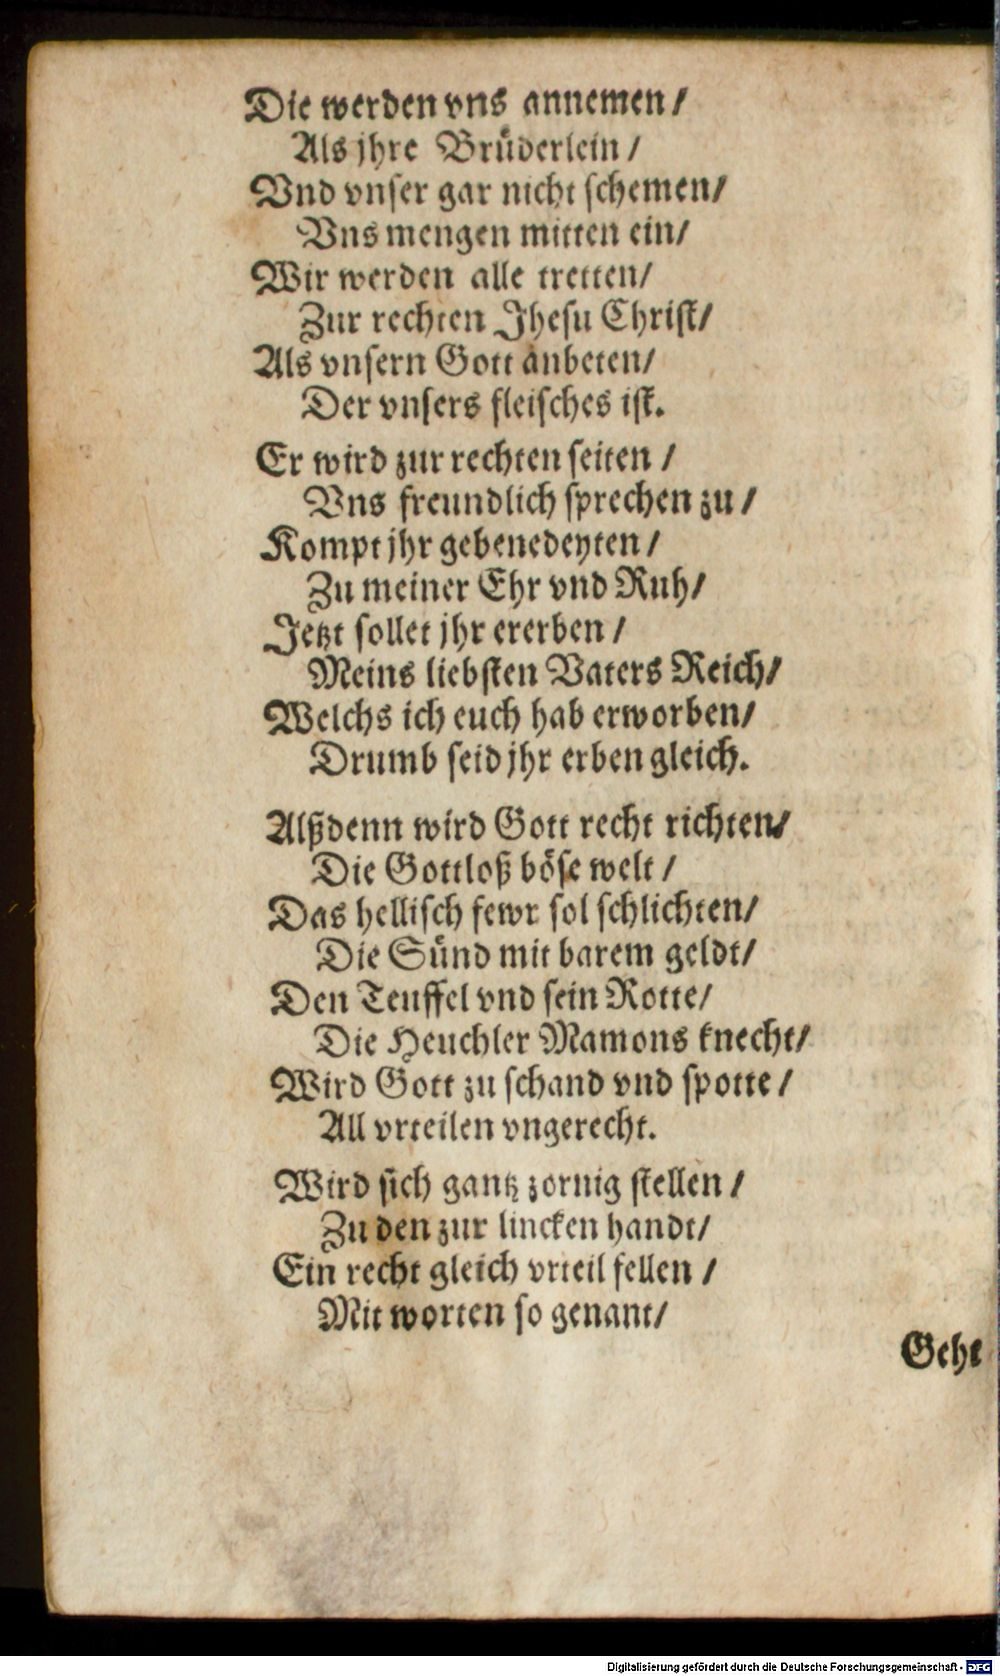 Die werden vns annemen/
Als jhre Brüderlein/
Vnd vnser gar nicht schemen/
Vns mengen mitten ein/
Wir werden alle tretten/
Zur rechten Jhesu Christ/
Als vnsern Gott anbeten/
Der vnsers fleisches ist.
Er wird zur rechten seiten/
Vns freundlich sprechen zu/
Kompt jhr gebenedeyten/
Zu meiner Ehr vnd Ruh/
Jetzt sollet jhr ererben/
Meins liebsten Vaters Reich/
Welchs ich euch hab erworben/
Drumb seid jhr erben gleich.
Alßdenn wird Gott recht richten/
Die Gottloß böse welt/
Das hellisch fewr sol schlichten/
Die Sünd mit barem geldt/
Den Teuffel vnd sein Rotte/
Die Heuchler Mamons knecht/
Wird Gott zu schand vnd spotte/
All vrteilen vngerecht.
Wird sich gantz zornig stellen/
Zu den zur lincken handt/
Ein recht gleich vrteil fellen/
Mit worten so genant/
Geht
Digitalisierung gefördert durch die Deutsche Forschungsgemeinschaft - DFG